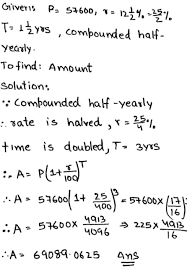 Given: P= 57600, r = 12 1/2 % = 25/2 %
T= 1 1/2 yrs, compounded half-
yearly.
To find: Amount
Solution:
∵ Compounded half-yearly
∴ rate is halved, r = 25/4 %
time is doubled, T= 3yrs
∴ A= P(1+ r/100)^T
∴ A= 57600(1+ 25/400)^3 = 57600×(17/16)^3
∴ A= 57600× 4913/4096 ⇒ 225× 4913/16
∴ A= 69089.0625 Ans